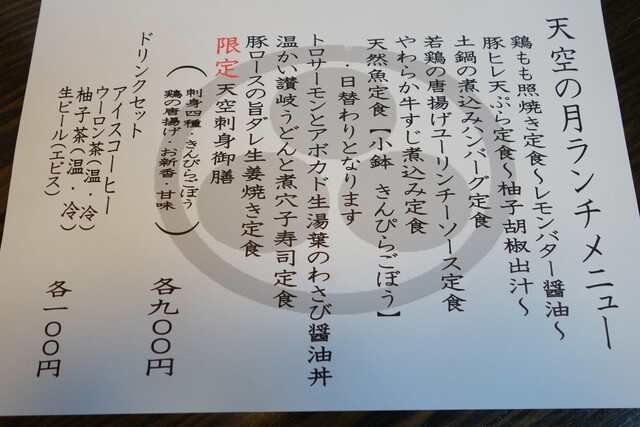 天空の月ランチメニュー
鶏もも照焼き定食〜レモンバター醤油〜
豚ヒレ天ぷら定食〜柚子胡椒出汁〜
土鍋の煮込みハンバーグ定食
若鶏の唐揚げユーリンチーソース定食
やわらか牛すじ煮込み定食
天然魚定食【小鉢 きんぴらごぼう】
・日替わりとなります
トロサーモンとアボカド生湯葉のわさび醤油丼
温かい讃岐うどんと煮穴子寿司定食
豚ロースの旨ダレ生姜焼き定食
限定 天空刺身御膳
(刺身四種・きんぴらごぼう
鶏の唐揚げ・お新香・甘味)
各九〇〇円
ドリンクセット
アイスコーヒー
ウーロン茶(温・冷)
柚子茶(温・冷)
生ビール(エビス)
各一〇〇円